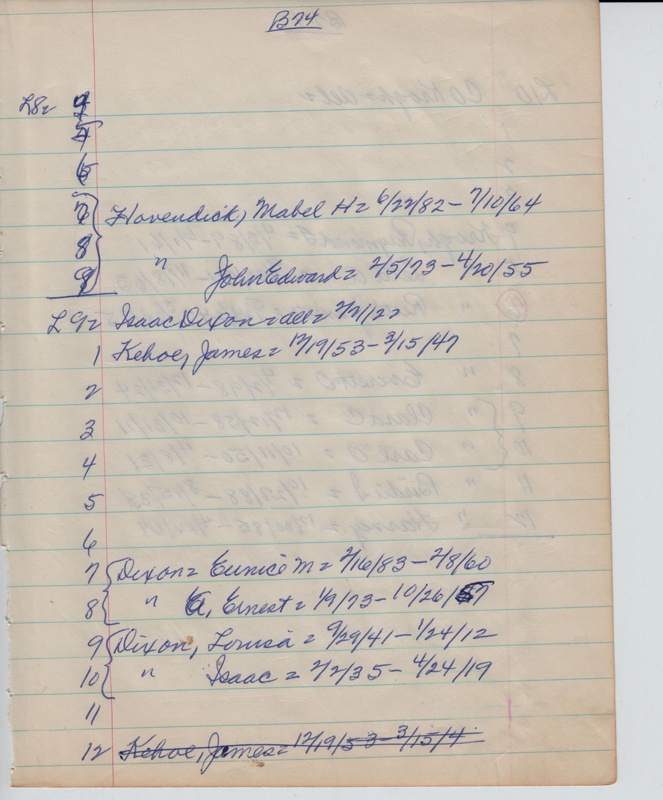 B24
L8=
5
6
7 Havendick, Mabel H = 6/22/82 - 7/10/64
8
9 " John Edward = 2/5/73 - 4/20/55
L9= Isaac Dixon = all = 2/21/22
1 Kehoe, James = 12/19/53 - 3/15/47
2
3
4
5
6
7 Dixon = Eunice M = 2/16/83 - 2/8/60
8 " A, Ernest = 1/9/73 - 10/26/57
9 Dixon, Louisa = 9/29/41 - 1/24/12
10 " Isaac = 2/2/35 - 4/24/19
11
12 Kehoe, James = 12/19/53 - 3/15/4